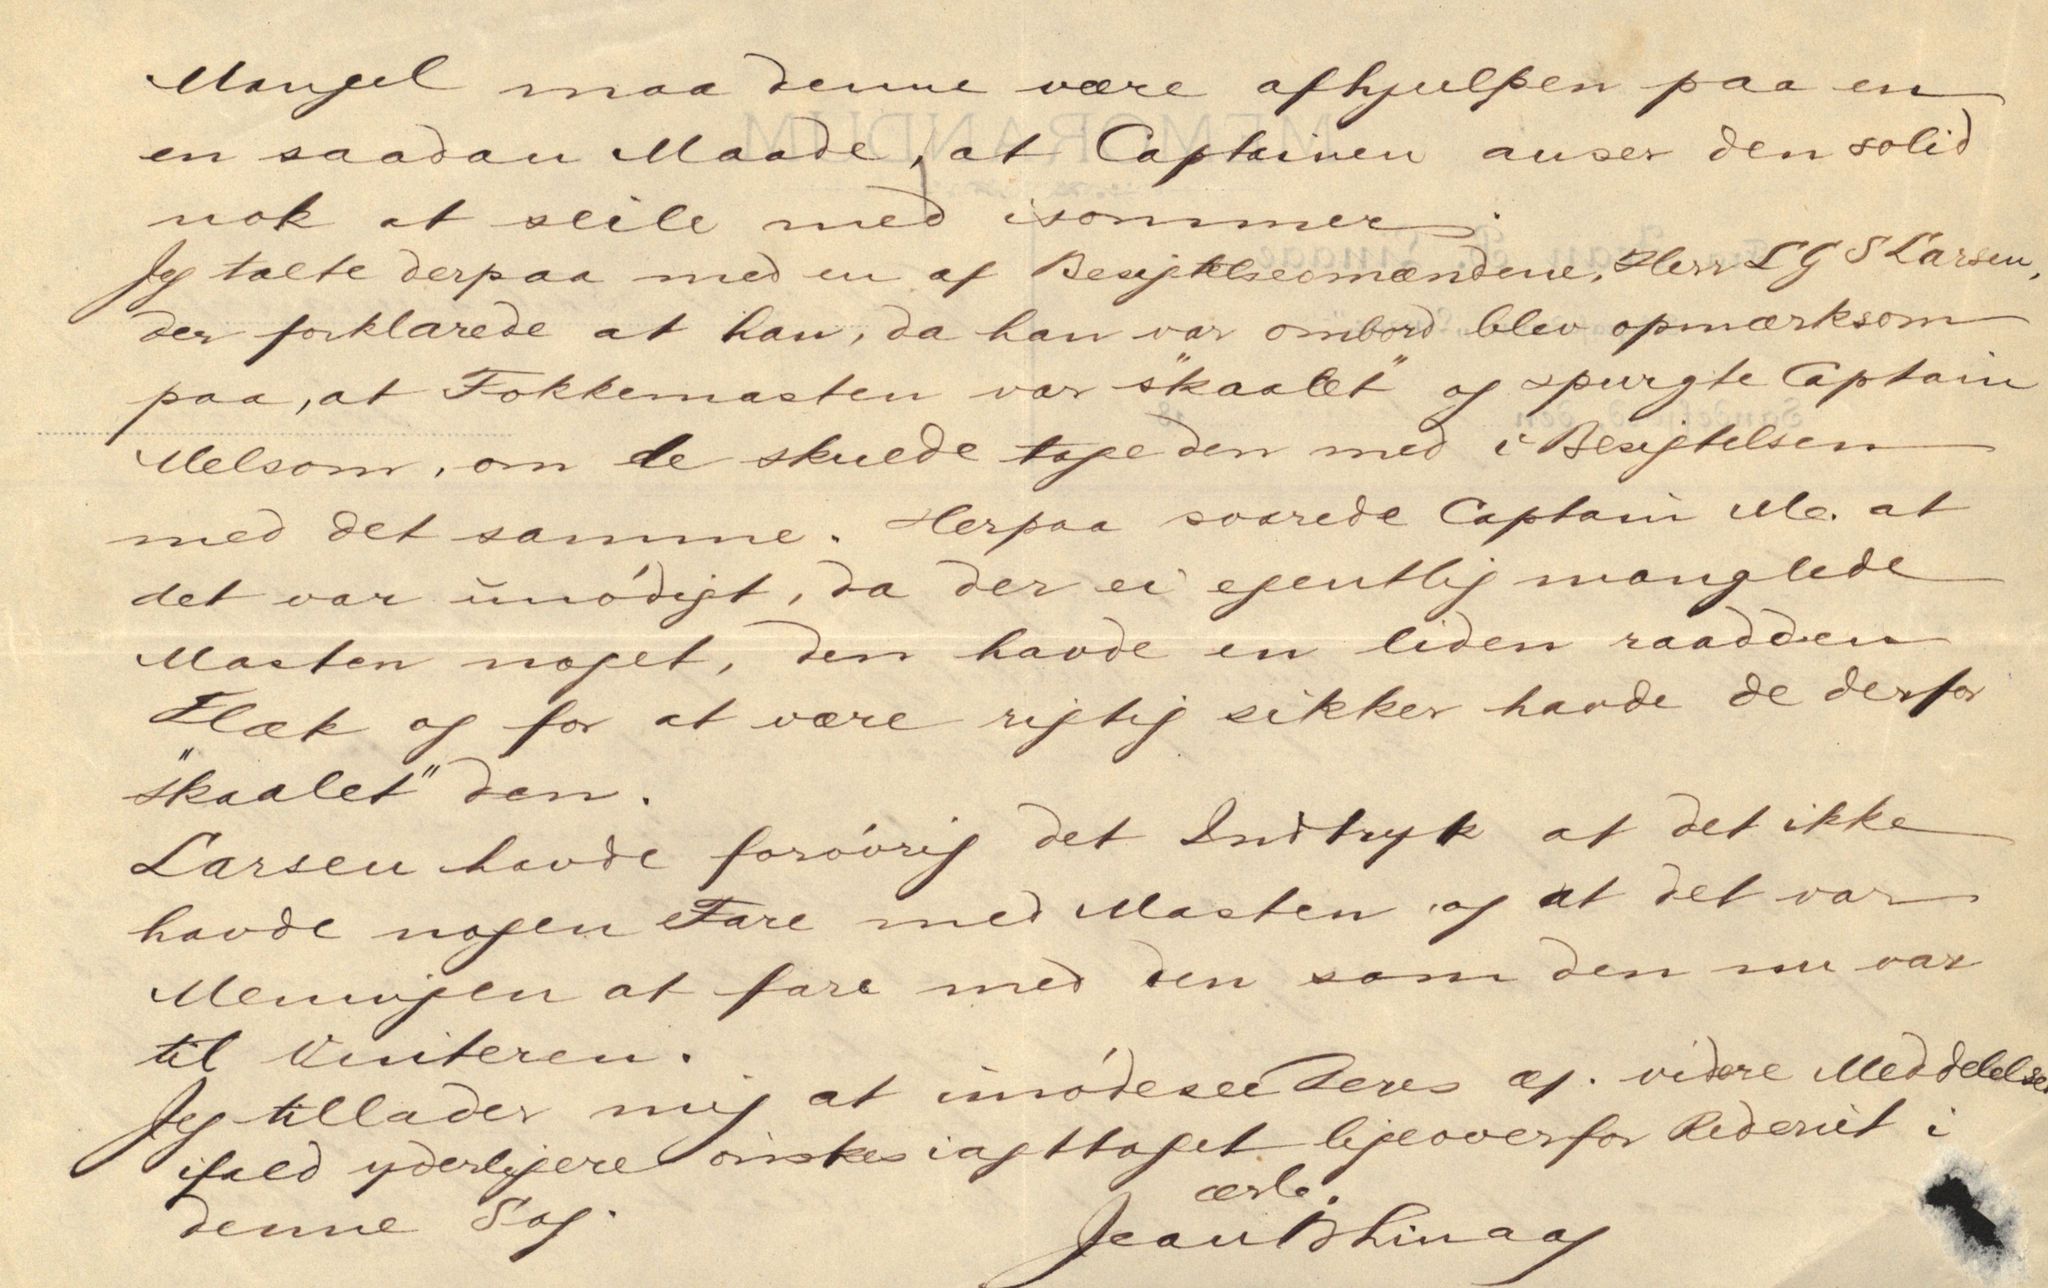 Mangel maa denne være afhjulpen paa en
en saadan Maade, at Captainen anser den solid
nok at seile med isommer.
Jeg talte derpaa med en af Besigtelsesmændene, Herr L G S Larsen,
der forklarede at han, da han var ombord blev opmærksom
paa, at Fokkemasten var "skaalet" og spurgte Captain
Melsom, om de skulde tage den med i Besigtelsen
med det samme. Herpaa svarede Captain Me. at
det var unódigt, da der ei egentlig manglede
Masten noget, den havde en liden raadden
Flæk og for at være rigtig sikker havde de derfor
"skaalet" den.
Larsen havde forøvrig det Indtryk at det ikke
havde nogen Fare med Masten og at det var
Meningen at fare med den som den nu var
til Vinteren.
Jeg tillader mig at imódesee Deres æ. videre Meddelelser
ifald yderligere ónskes iagttaget ligeoverfor Rederiet i
denne Sag.
ærb.
Jean B Linaae
MEMORANDUM
Sandefjord, den 18